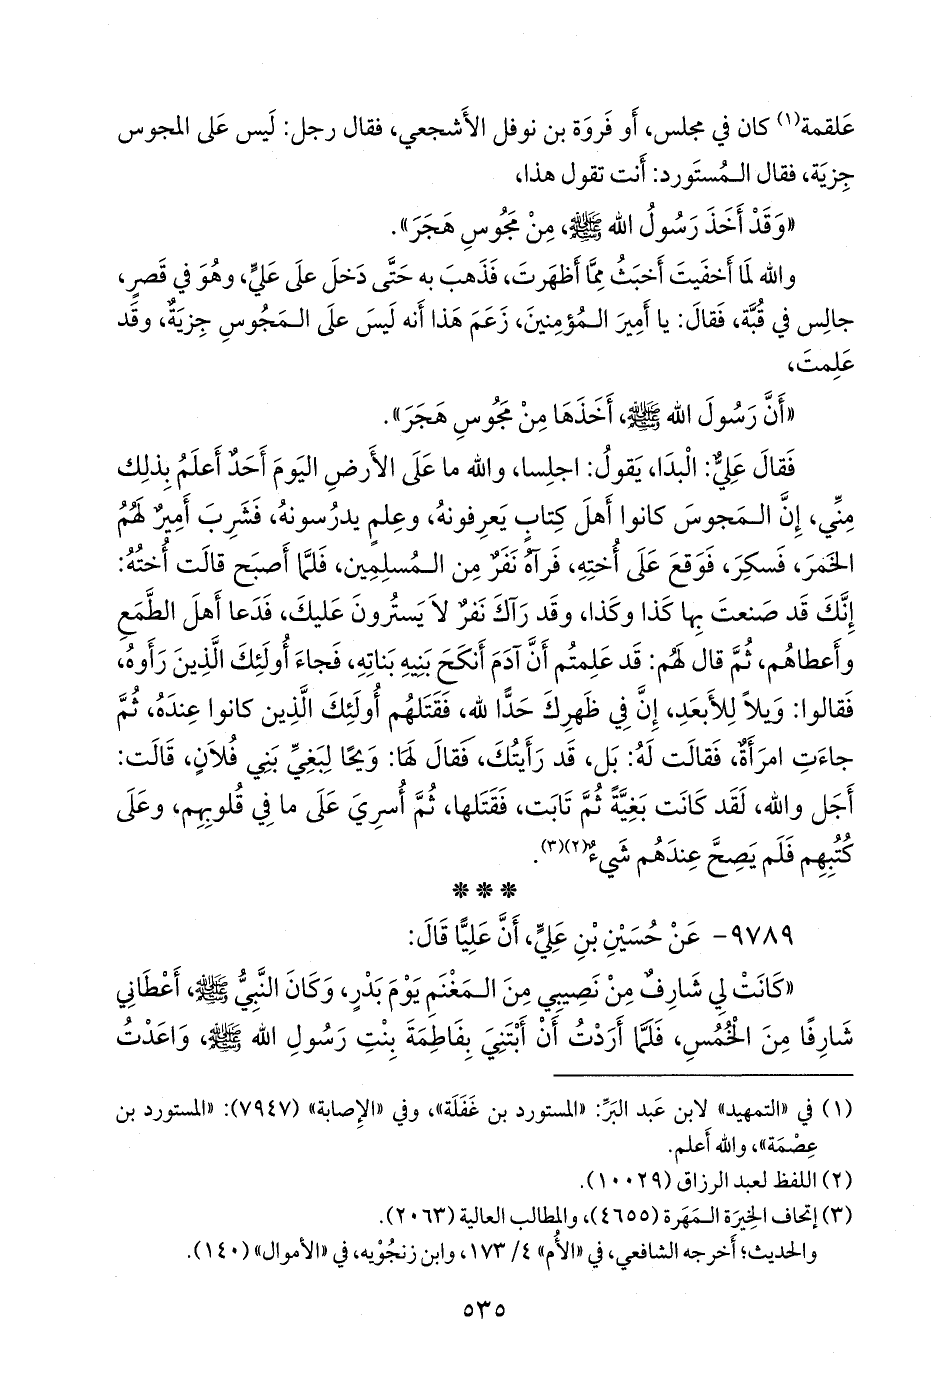 عَلقمة(١) كان في مجلس، أَو فَروَة بن نوفل الأَشجعي، فقال رجل: لَيس عَلى المجوس
جِزيَة، فقال الـمُستَورد: أَنت تقول هذا،
«وَقَدْ أَخَذَ رَسُولُ الله ﷺ، مِنْ مَجُوسِ هَجَرَ».
والله لَما أَخفَيتَ أَخبَثُ مِمَّا أَظهَرتَ، فَذَهبَ به حَتَّى دَخلَ علَى عَليٍّ، وهُوَ في قَصرٍ،
جالِس في قُبَّة، فَقالَ: يا أَمِيرَ الـمُؤمِنينَ، زَعَمَ هَذا أَنه لَيسَ علَى الـمَجُوسِ جِزيَةٌ، وقَد
عَلِمتَ،
«أَنَّ رَسُولَ الله ﷺ، أَخَذَهَا مِنْ مَجُوسِ هَجَرَ».
فَقالَ عَليٌّ: الْبدَا، يَقولُ: اجلِسا، والله ما عَلَى الأَرضِ اليَومَ أَحَدٌ أَعلَمُ بِذلِك
مِنِّي، إِنَّ الـمَجوسَ كانوا أَهلَ كِتابٍ يَعرِفونهُ، وعِلمٍ يدرُسونهُ، فَشَرِبَ أَمِيرٌ لَهُمُ
الخَمرَ، فَسكِرَ، فَوَقعَ عَلَى أُختِهِ، فَرآهُ نَفَرٌ مِن الـمُسلِمِين، فَلَمَّا أَصبَح قالَت أُختُهُ:
إِنَّكَ قَد صَنعتَ بِها كَذا وكَذا، وقَد رَآكَ نَفرٌ لاَ يَستُرونَ عَليكَ، فَدَعا أَهلَ الطَّمَعِ
وأَعطاهُم، ثُمَّ قال لَهُم: قَد عَلِمتُم أَنَّ آدَمَ أَنكَحَ بَنِيهِ بَناتِهِ، فَجاءَ أُولَئِكَ الَّذِينَ رَأَوهُ،
فَقالوا: وَيلاً لِلأَبعَدِ، إِنَّ في ظَهرِكَ حَدًّا لله، فَقَتَلهُم أُولَئِكَ الَّذِين كانوا عِندَهُ، ثُمَّ
جاءَتِ امرَأَةٌ، فَقالَت لَهُ: بَل، قَد رَأَيتُكَ، فَقالَ لَها: وَيحًا لِبَغِيِّ بَنِي فُلاَنٍ، قَالَت:
أَجَل والله، لَقَد كانَت بَغِيَّةً ثُمَّ تابَت، فَقَتَلها، ثُمَّ أُسرِيَ عَلَى ما في قُلوبِهِم، وعَلَى
كُتُبِهِم فَلَم يَصِحَّ عِندَهُم شَيءٌ(٢)(٣).
***
٩٧٨٩- عَنْ حُسَيْنِ بْنِ عَلِيٍّ، أَنَّ عَلِيًّا قَالَ:
«كَانَتْ لِي شَارِفٌ مِنْ نَصِيبِي مِنَ الـمَغْنَمِ يَوْمَ بَدْرٍ، وَكَانَ النَّبِيُّ ﷺ، أَعْطَانِي
شَارِفًا مِنَ الْخُمُسِ، فَلَمَّا أَرَدْتُ أَنْ أَبْتَنِيَ بِفَاطِمَةَ بِنْتِ رَسُولِ الله ﷺ، وَاعَدْتُ
(١) في «التمهيد» لابن عَبد البَرِّ: «المستورد بن غَفَلَة»، وفي «الإِصابة» (٧٩٤٧): «المستورد بن
عِصْمَة»، والله أَعلم.
(٢) اللفظ لعبد الرزاق (١٠٠٢٩).
(٣) إتحاف الخِيرَة الـمَهَرة (٤٦٥٥)، والمطالب العالية (٢٠٦٣).
والحديث؛ أَخرجه الشافعي، في «الأُم» ٤/ ١٧٣، وابن زنجُوْيه، في «الأَموال» (١٤٠).
٥٣٥